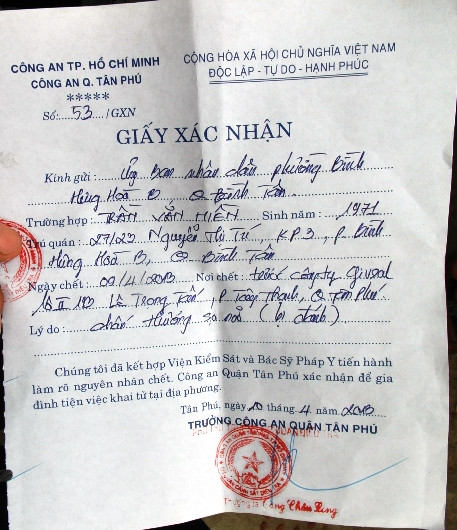 CÔNG AN TP. HỒ CHÍ MINH
CÔNG AN Q. TÂN PHÚ
*****
Số:....53..../GXN
CỘNG HÒA XÃ HỘI CHỦ NGHĨA VIỆT NAM
ĐỘC LẬP - TỰ DO - HẠNH PHÚC
GIẤY XÁC NHẬN
Kính gửi : Ủy Ban nhân dân phường Bình
Hưng Hoà B, Q Bình Tân
Trường hợp : TRẦN VĂN HIỀN Sinh năm : 1971
Trú quán : 27/23 Nguyễn Thị Tú, KP3, P. Bình
Hưng Hoà B, Q. Bình Tân
Ngày chết : 09/4/2013 Nơi chết : trước công ty
Lê Trọng Tấn, P. Tây Thạnh, Q Tân Phú
Lý do : chấn thương sọ não (bị đánh)
Chúng tôi đã kết hợp Viện Kiểm Sát và Bác Sỹ Pháp Y tiến hành
làm rõ nguyên nhân chết. Công an Quận Tân Phú xác nhận để gia
đình tiện việc khai tử tại địa phương.
Tân Phú, ngày 10 tháng 4 năm 2013
TRƯỞNG CÔNG AN QUẬN TÂN PHÚ